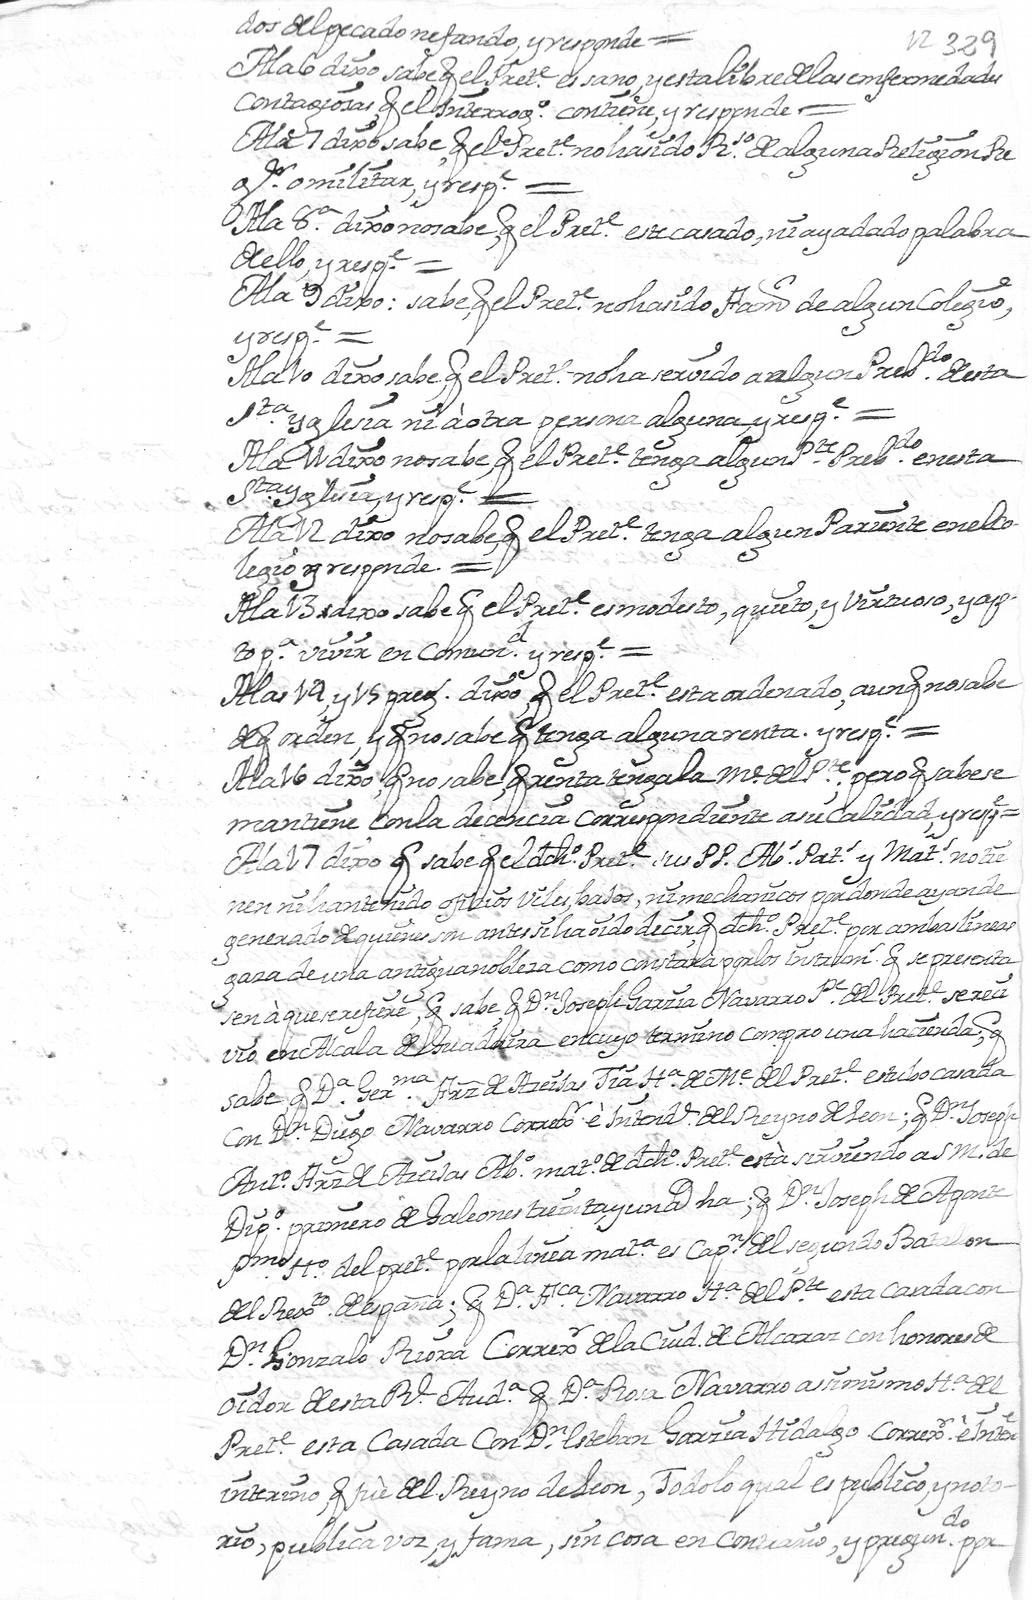 12 329
dos del pecado nefando, y responde =
A la 6 dixo sabe q el Pret.e es sano, y esta libre de las enfermedades
contagiosas q el Interrog.o contiene, y responde =
A la 7 dixo sabe, q el Pret.e no ha sido R.so de alguna Religion Re
g.r o militar, y resp.e =
A la 8.a dixo no sabe, q el Pret.e este casado, ni aya dado palabra
de ello, y resp.e =
A la 9 dixo: sabe, q el Pret.e no ha sido Fam.r de algun Colegio,
y resp.e =
A la 10 dixo sabe q el Pret.e no ha servido a algun Preb.do de esta
S.ta Yglesia ni à otra persona alguna y resp.e =
A la 11 dixo no sabe, q el Pret.e tenga algun P.te Preb.do en esta
S.ta Yglesia, y resp.e =
A la 12 dixo no sabe, q el Pret.e tenga algun Pariente en el Co-
legio y responde. =
A la 13 dixo sabe q el Pret.e es modesto, quieto, y virtuoso, y ap-
to p.a vivir en Comun.d y resp.e =
A las 14, y 15 preg. dixo, q el Pret.e esta ordenado, aunq no sabe
de q orden, y q no sabe q tenga alguna renta. y resp.e =
A la 16 dixo, q no sabe, q renta tenga la M.e del P.te, pero q sabe se
mantiene con la decencia correspondiente a su calidad, y resp.e =
A la 17 dixo q sabe q el dch.o Pret.e sus PP. Ab.s Pat.s y Mat.s no tie
nen ni han tenido oficios viles, bajos, ni mechanicos por donde ayan de
generado de quienes son antes si ha oido decir, q dch.o Pret.e por ambas lineas
goza de una antigua nobleza como constara por los instrum.s q se presenta
sen à que se refiere, q sabe, q D.n Joseph Garzia Navarro P.e del Pret.e se reci
vio en Alcala de Guadaira en cuyo termino compro una hacienda; q
sabe q D.a Ger.ma Frz de Arcilas Tia H.a de M.e del Pret.e estubo casada
con D.n Diego Navarro Correx.r è Intend.e del Reyno de Leon; q D.n Joseph
Ant.o Frz de Arcilas Ab.o mat.o de dch.o Pret.e està sirviendo a S M. de
Dip.o primero de Galeones treinta y un a.s ha; q D.n Joseph de Aponte
pmo H.o del pret.e por la linea mat.a es Cap.n del segundo Batallon
del Rex.to de españa; q D.a Fca Navarro H.a del P.te esta casada con
D.n Gonzalo Rioxa Correx.r de la Ciud. de Alcaraz con honores de
oidor de esta R.l Aud.a q D.a Rosa Navarro assimismo H.a del
Pret.e esta Casada Con D.n Esteban Garzia Hidalgo Correx.r è Inten.te
interino, q fuè del Reyno de Leon, Todo lo qual es publico, y noto-
rio, publica voz, y fama, sin cosa en contrario, y pregun.do por